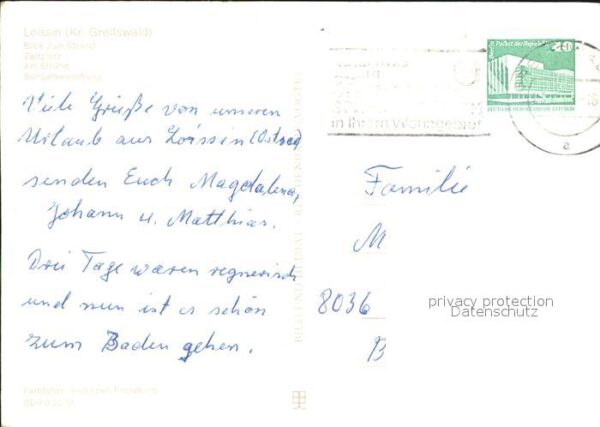 Loissin (Kr. Greifswald)
Blick zum Strand
Zeltplatz
Am Strand
Bungalowsiedlung
Viele Grüße von unseren
Urlaub aus Loissin (Ostsee)
senden Euch Magdalena,
Johann u. Matthias.
Drei Tage waren regnerisch
und nun ist es schön
zum Baden gehen.
BILD UND HEIMAT
Berlin, Palast der Republik
20
DEUTSCHE DEMOKRATISCHE REPUBLIK
in Ihrem Wohngebiet
a
Familie
M
8036
B
privacy protection
Datenschutz